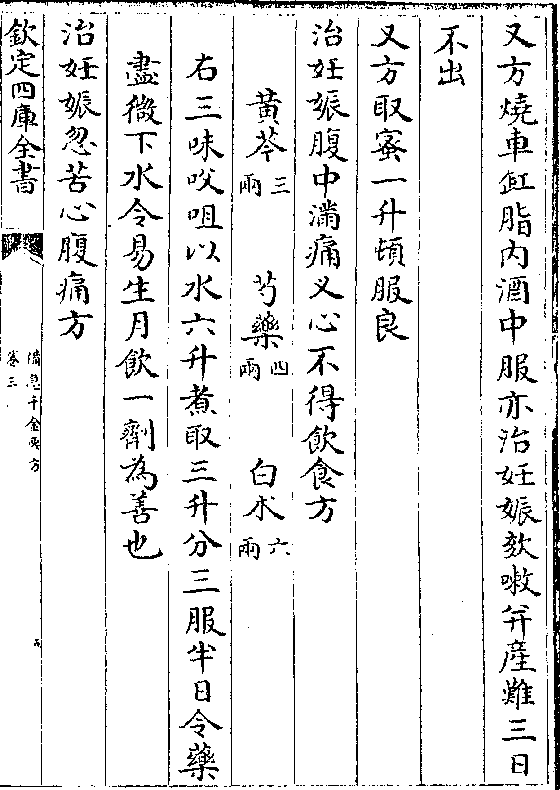 又方燒車缸脂内酒中服亦治妊娠欬嗽并産難三日
不出
又方取蜜一升頓服良
治妊娠腹中滿痛叉心不得飲食方
黄芩三兩 芍藥四兩 白朮六兩
右三味㕮咀以水六升煮取三升分三服半日令藥
盡微下水令易生月飲一劑為善也
治妊娠忽苦心腹痛方
欽定四庫全書
備急千金要方
卷三